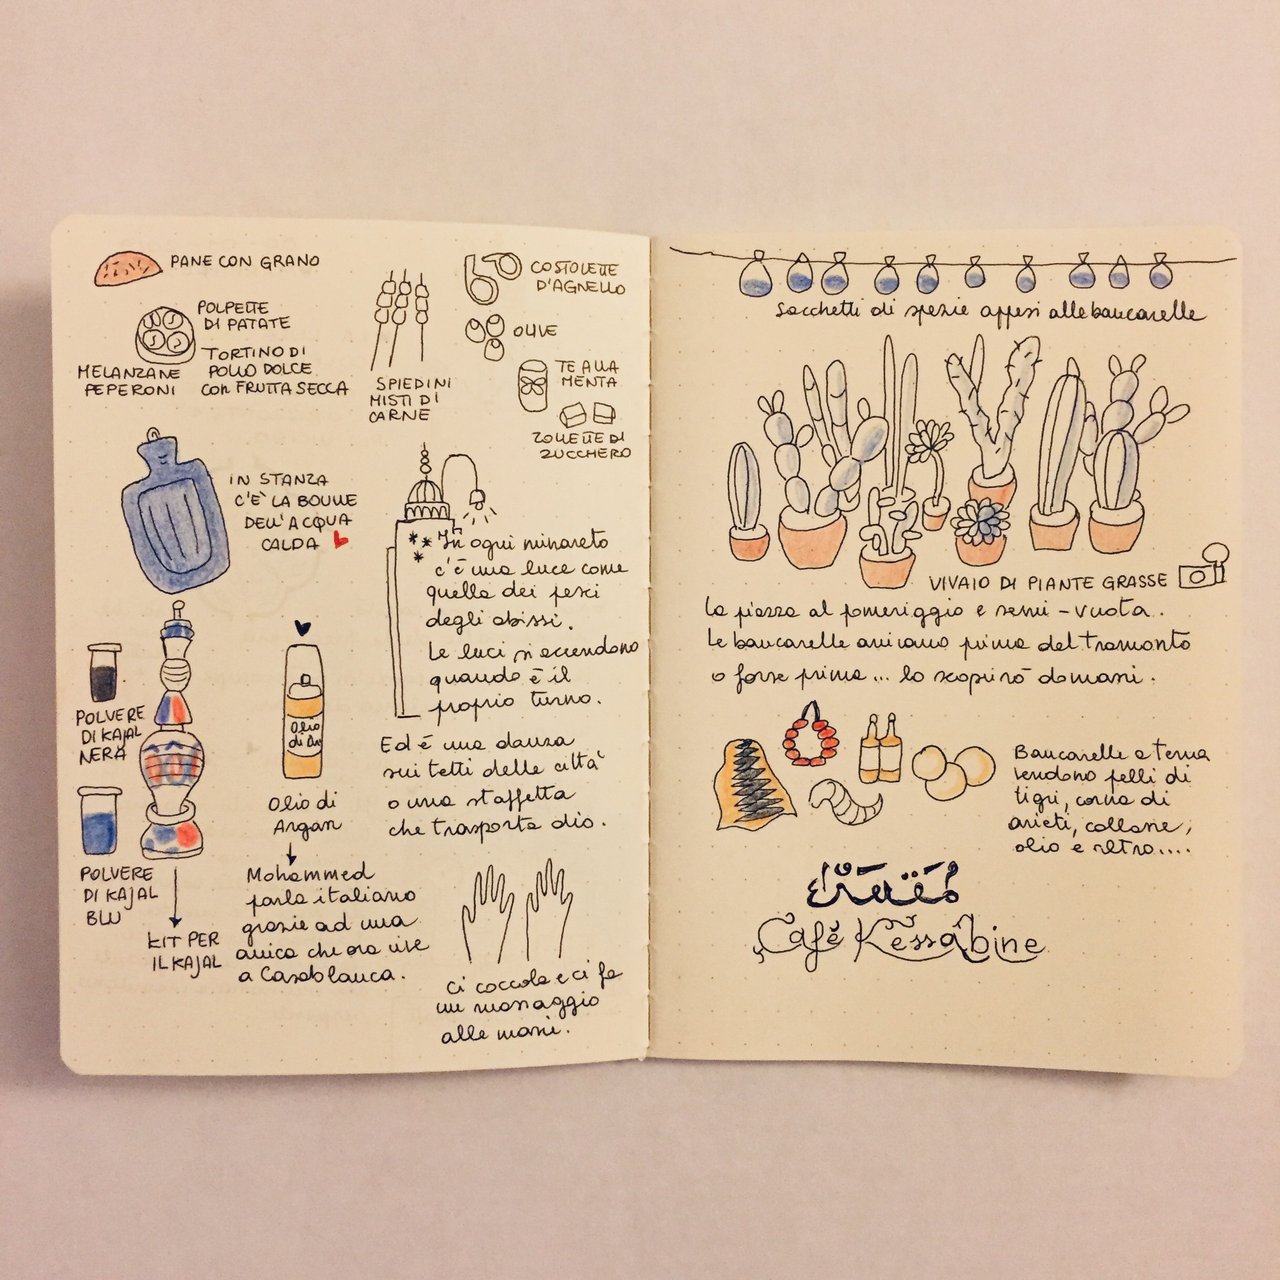 PANE CON GRANO
POLPETTE
DI PATATE
MELANZANE
PEPERONI
TORTINO DI
POLLO DOLCE
con FRUTTA SECCA
SPIEDINI
MISTI DI
CARNE
COSTOLETTE
D'AGNELLO
OLIVE
TE ALLA
MENTA
ZOLLETTE DI
ZUCCHERO
IN STANZA
C'È LA BOULLE
DELL'ACQUA
CALDA
In ogni minareto
c'è una luce come
quella dei pesci
degli abissi.
Le luci si accendono
quando è il
proprio turno.
Ed è una danza
sui tetti delle città
o una staffetta
che trasporta dio.
POLVERE
DI KAJAL
NERA
POLVERE
DI KAJAL
BLU
KIT PER
IL KAJAL
Olio
di Ar
Olio di
Argan
Mohammed
parla italiano
grazie ad una
amica che ora vive
a Casablanca.
ci coccola e ci fa
un massaggio
alle mani.
Sacchetti di spezie appesi alle bancarelle
VIVAIO DI PIANTE GRASSE
La piazza al pomeriggio e semi-vuota.
Le bancarelle arrivano prima del tramonto
o forse prima... lo scoprirò domani.
Bancarelle a terra
vendono pelli di
tigri, corna di
arieti, collane,
olio e altro....
Café Kessabine